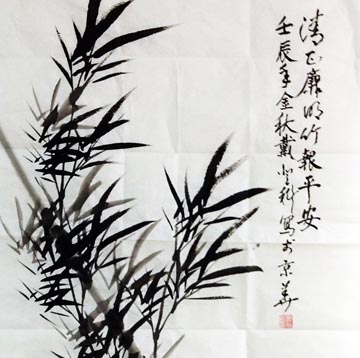 清正廉明竹报平安
壬辰年金秋戴登科写于京华